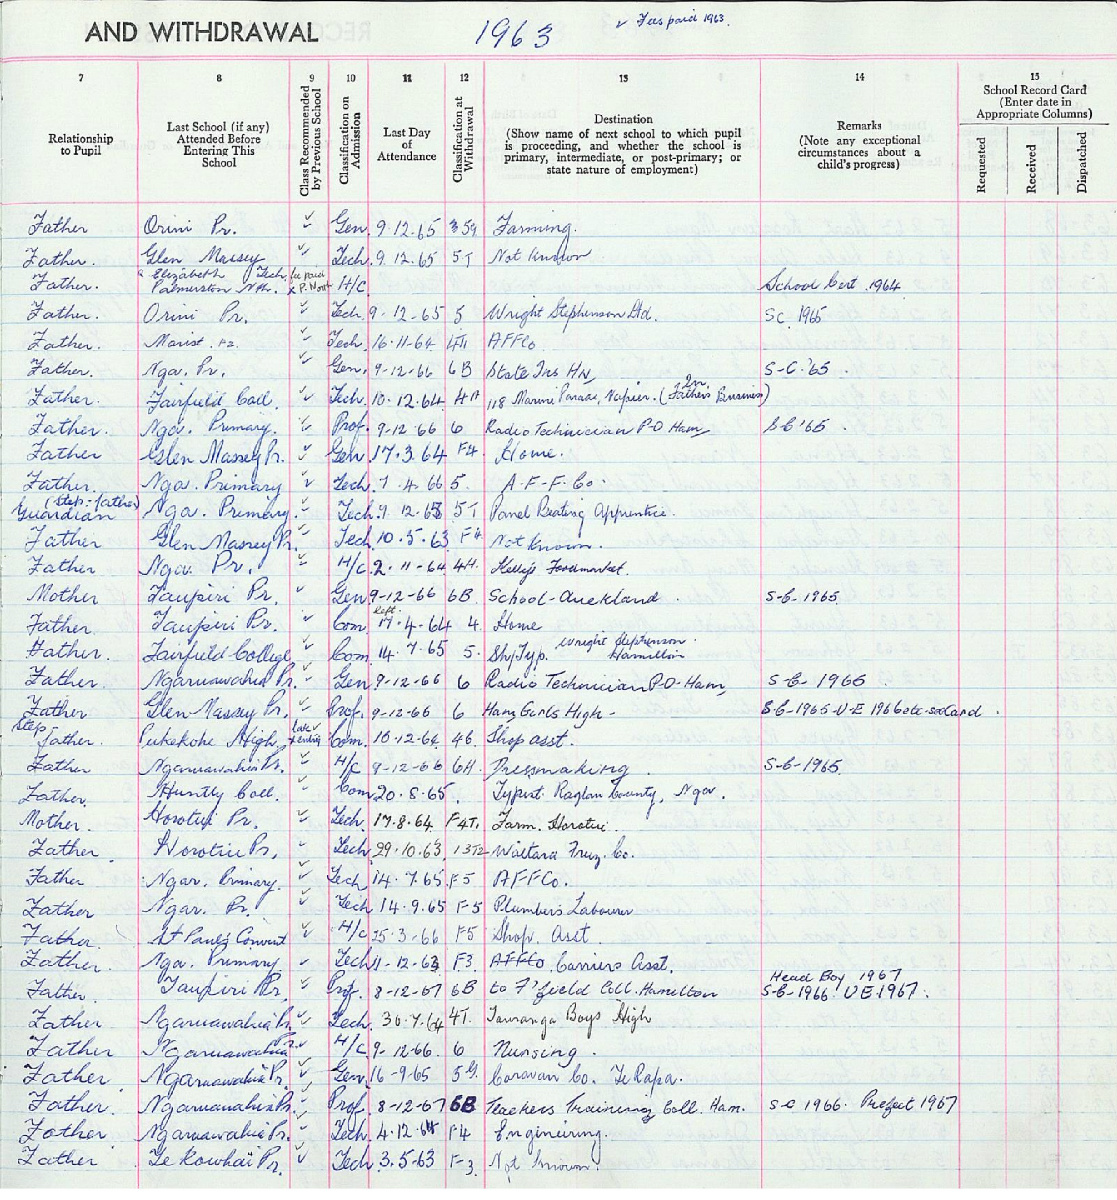 AND WITHDRAWAL 1963 ✓ Fees paid 1963.
7 8 9 10 11 12 13 14 15
Relationship to Pupil
Last School (if any) Attended Before Entering This School
Class Recommended by Previous School
Classification on Admission
Last Day of Attendance
Classification at Withdrawal
Destination (Show name of next school to which pupil is proceeding, and whether the school is primary, intermediate, or post-primary; or state nature of employment)
Remarks (Note any exceptional circumstances about a child's progress)
School Record Card (Enter date in Appropriate Columns)
Requested Received Dispatched
Father Orini Pr. ✓ Gen. 9.12.65 Farming.
Father. Glen Massey ✓ Tech. 9.12.65 5T Not known
Father. Elizabeth Tech. Palmerston Nth. H/C School Cert. 1964
Father. Orini Pr. ✓ Tech. 9-12-65 5 Wright Stephenson Ltd. S.C. 1965
Father. Marist. ✓ Tech. 16.11.64 AFFCo
Father. Nga. Pr. ✓ Gen. 9-12-66 6B State Ins Hn S-C-'65.
Father. Fairfield Coll. ✓ Tech. 10.12.64 4A 118 Marine Parade, Napier. (In Fathers Business)
Father. Nga. Primary. Prof. 9-12-66 6 Radio Technician P-O Ham S-C-'65.
Father Glen Massey Pr. ✓ Gen 17.3.64 F4. Home.
Father. Nga. Primary ✓ Tech. 7.4.66 5. A-F-F-Co.
(Step-father) Guardian Nga. Primary. ✓ Tech. 12. 5T Panel Beating Apprentice.
Father Glen Massey Pr. ✓ Tech. 10.5.63 F4 Not known.
Father Nga. Pr. H/C. 2.11-64 4H. Kellys Foodmarket.
Mother Taupiri Pr. ✓ Gen 9-12-66 6B. School-Auckland. S-C-1965
Father. Taupiri Pr. ✓ Com. left 17.4.64 4. Home
Father. Fairfield College ✓ Com. 14.7.65 5. Sh/Typ. Wright Stephenson. Hamilton
Father. Ngaruawahia Pr. ✓ Gen 9-12-66 6 Radio Technician P-O-Ham, S-C-1965
Father Glen-Massey Pr. ✓ Prof. 9-12-66 6 Ham Girls High- S-C-1965-U-E 1966
Step father. Pukekohe High Com. 10.12.64. Shop asst.
Father Ngaruawahia Pr. ✓ H/C 9-12-66 6H. Dressmaking. S-C-1965
Father. Huntly Coll. ✓ Com 20.8.65. Typist. Raglan County, Nga.
Mother. Horotiu Pr. ✓ Tech. 17.8.64 F4T. Farm. Horotiu.
Father. Horotiu Pr. ✓ Tech 29.10.63 Waitara Co.
Father Ngar. Primary. ✓ Tech 14.7.65 F5 AFFCo.
Father Ngar. Pr. ✓ Tech 14.9.65 F-5 Plumbers Labourer
Father. St Pauls Convent ✓ H/C 25.3.66 F5 Shop. Asst.
Father. Nga. Primary Tech 11-12-63 F3. AFFCo Carriers Asst.
Father. Taupiri Pr. ✓ Prof. 8-12-67 6B to F'field Coll. Hamilton Head Boy 1967 S-C-1966. UE 1967.
Father Ngaruawahia Pr. ✓ Tech. 30.7.64 4T. Tauranga Boys High
Father Ngaruawahia ✓ H/C 9-12.66. 6 Nursing.
Father. Ngaruawahia Pr. ✓ Gen 16-9.65 5G. Caravan Co. Te Rapa.
Father. Ngaruawahia Pr. ✓ Prof. 8-12-67 6B Teachers Training Coll. Ham. S-C 1966. Prefect 1967
Father Ngaruawahia Pr. ✓ Tech. 4.12.64 F4 Engineering.
Father Te Kowhai Pr. ✓ Tech 3.5.63 F-3. Not known.